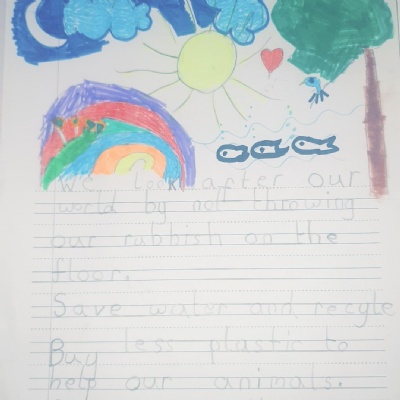 We look after our
world by not throwing
our rubbish on the
floor.
Save water and recyle
Buy less plastic to
help our animals.